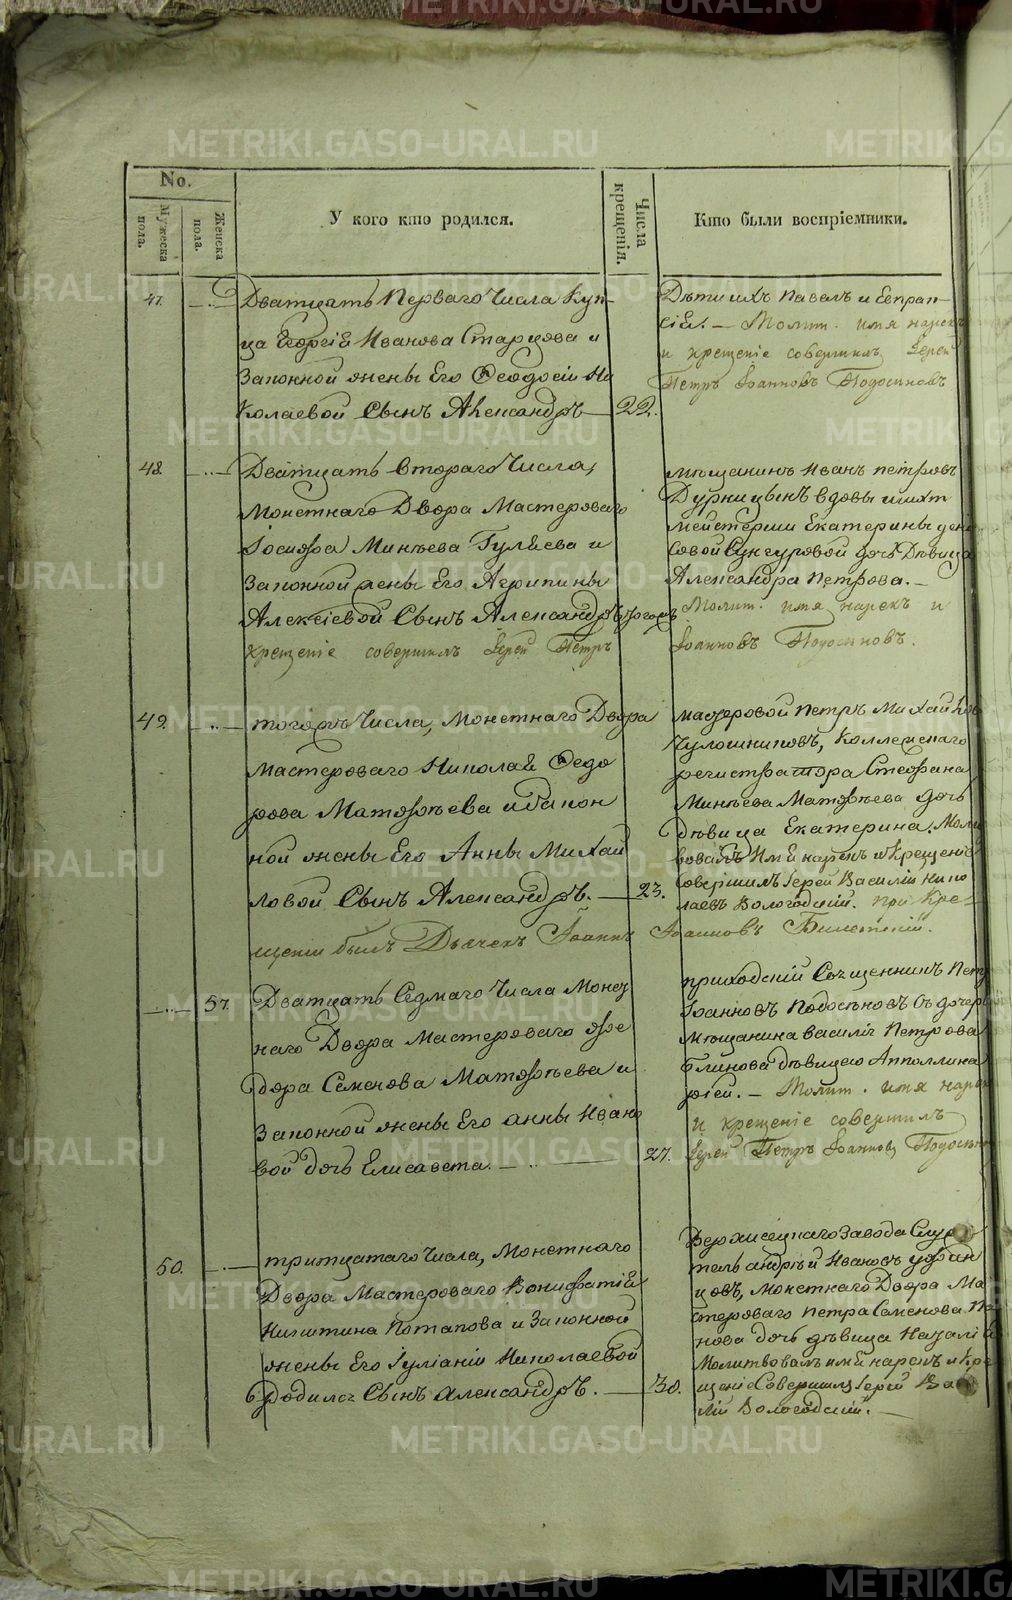 No.
Мужеска пола.
Женска пола.
У кого кто родился.
Числа крещенія.
Кто были воспріемники.
47.
Дватцать Перваго Числа Куп-
ца Георгіѣ Иванова Старцова и
Законной жены Его Ѳеодосіи Ни
колаевой Сынъ Александръ
22.
Дѣти ихъ Павелъ и Евпрак-
сіѣ. — Молит. имя нарекъ
и крещеніе совершилъ Іерей
Петръ Іоанновъ Подосеновъ
48.
Дватцать втораго Числа,
Монетнаго Двора Мастероваго
Іосифа Минѣева Гуляева и
Законной жены Его Агрипины
Алексіевой Сынъ Александръ
крещеніе совершилъ Іерей Петръ
Мѣщанинъ Иванъ Петровъ
вдовы шихт
мейстерши Екатерины
дочь Дѣвица
Александра Петрова. —
Молит. имя нарекъ и
Іоанновъ Подосеновъ.
49.
тогожъ Числа, Монетнаго Двора
Мастероваго Николай Ѳедо
рова Матвѣева и Закон
ной жены Его Анны Михай
ловой Сынъ Александръ. —
23.
Мастеровой Петръ Михайлов
Чулошниковъ, Коллежскаго
регистратора Стефана
Минѣева Матвѣева дочь
дѣвица Екатерина. Моли
вовалъ Имѣ нарекъ и Крещеніе
совершилъ Іерей Василій Нико
лаевъ Вологодскій. при Кре-
щеніи былъ Дьячекъ Іоаннъ Іоанновъ
57.
Дватцать Седмаго Числа Монет
наго Двора Мастероваго Ѳе
дора Семенова Матвѣева и
Законной жены Его Анны Ивано
вой дочь Елисавета. —
27.
приходскій Священникъ Петръ
Іоанновъ Подосѣновъ съ дочерью
мѣщанина Василія Петрова
Блинова дѣвицею Апполлина
ріей. — Молит. имя нарекъ
и крещеніе совершилъ
Іерей Петръ Іоанновъ Подосѣн
50.
тритцатаго Числа, Монетнаго
Двора Мастероваго Вонифатіѣ
Никитина Потапова и Законной
жены Его Іуліаніи Николаевой
родился Сынъ Александръ. —
30.
Верхисецкаго завода Слу
тель Андрѣй Ивановъ
цовъ, Монетнаго Двора Ма
стероваго Петра Семенова
нова дочь дѣвица Наталіѣ
Молитвовалъ имѣ нарекъ и Кре
щеніе Совершилъ Іерей Ва
лій Вологодскій. —
METRIKI.GASO-URAL.RU